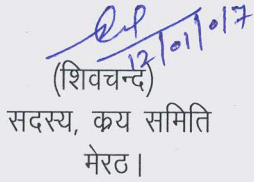 12/01/017
(शिवचन्द)
सदस्य, क्रय समिति
मेरठ।